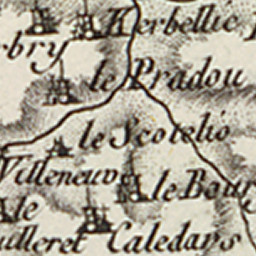 Kerbellic
bry
le Pradou
le Scotelio
Villeneuv
le Bour
le
ulleret Caledans